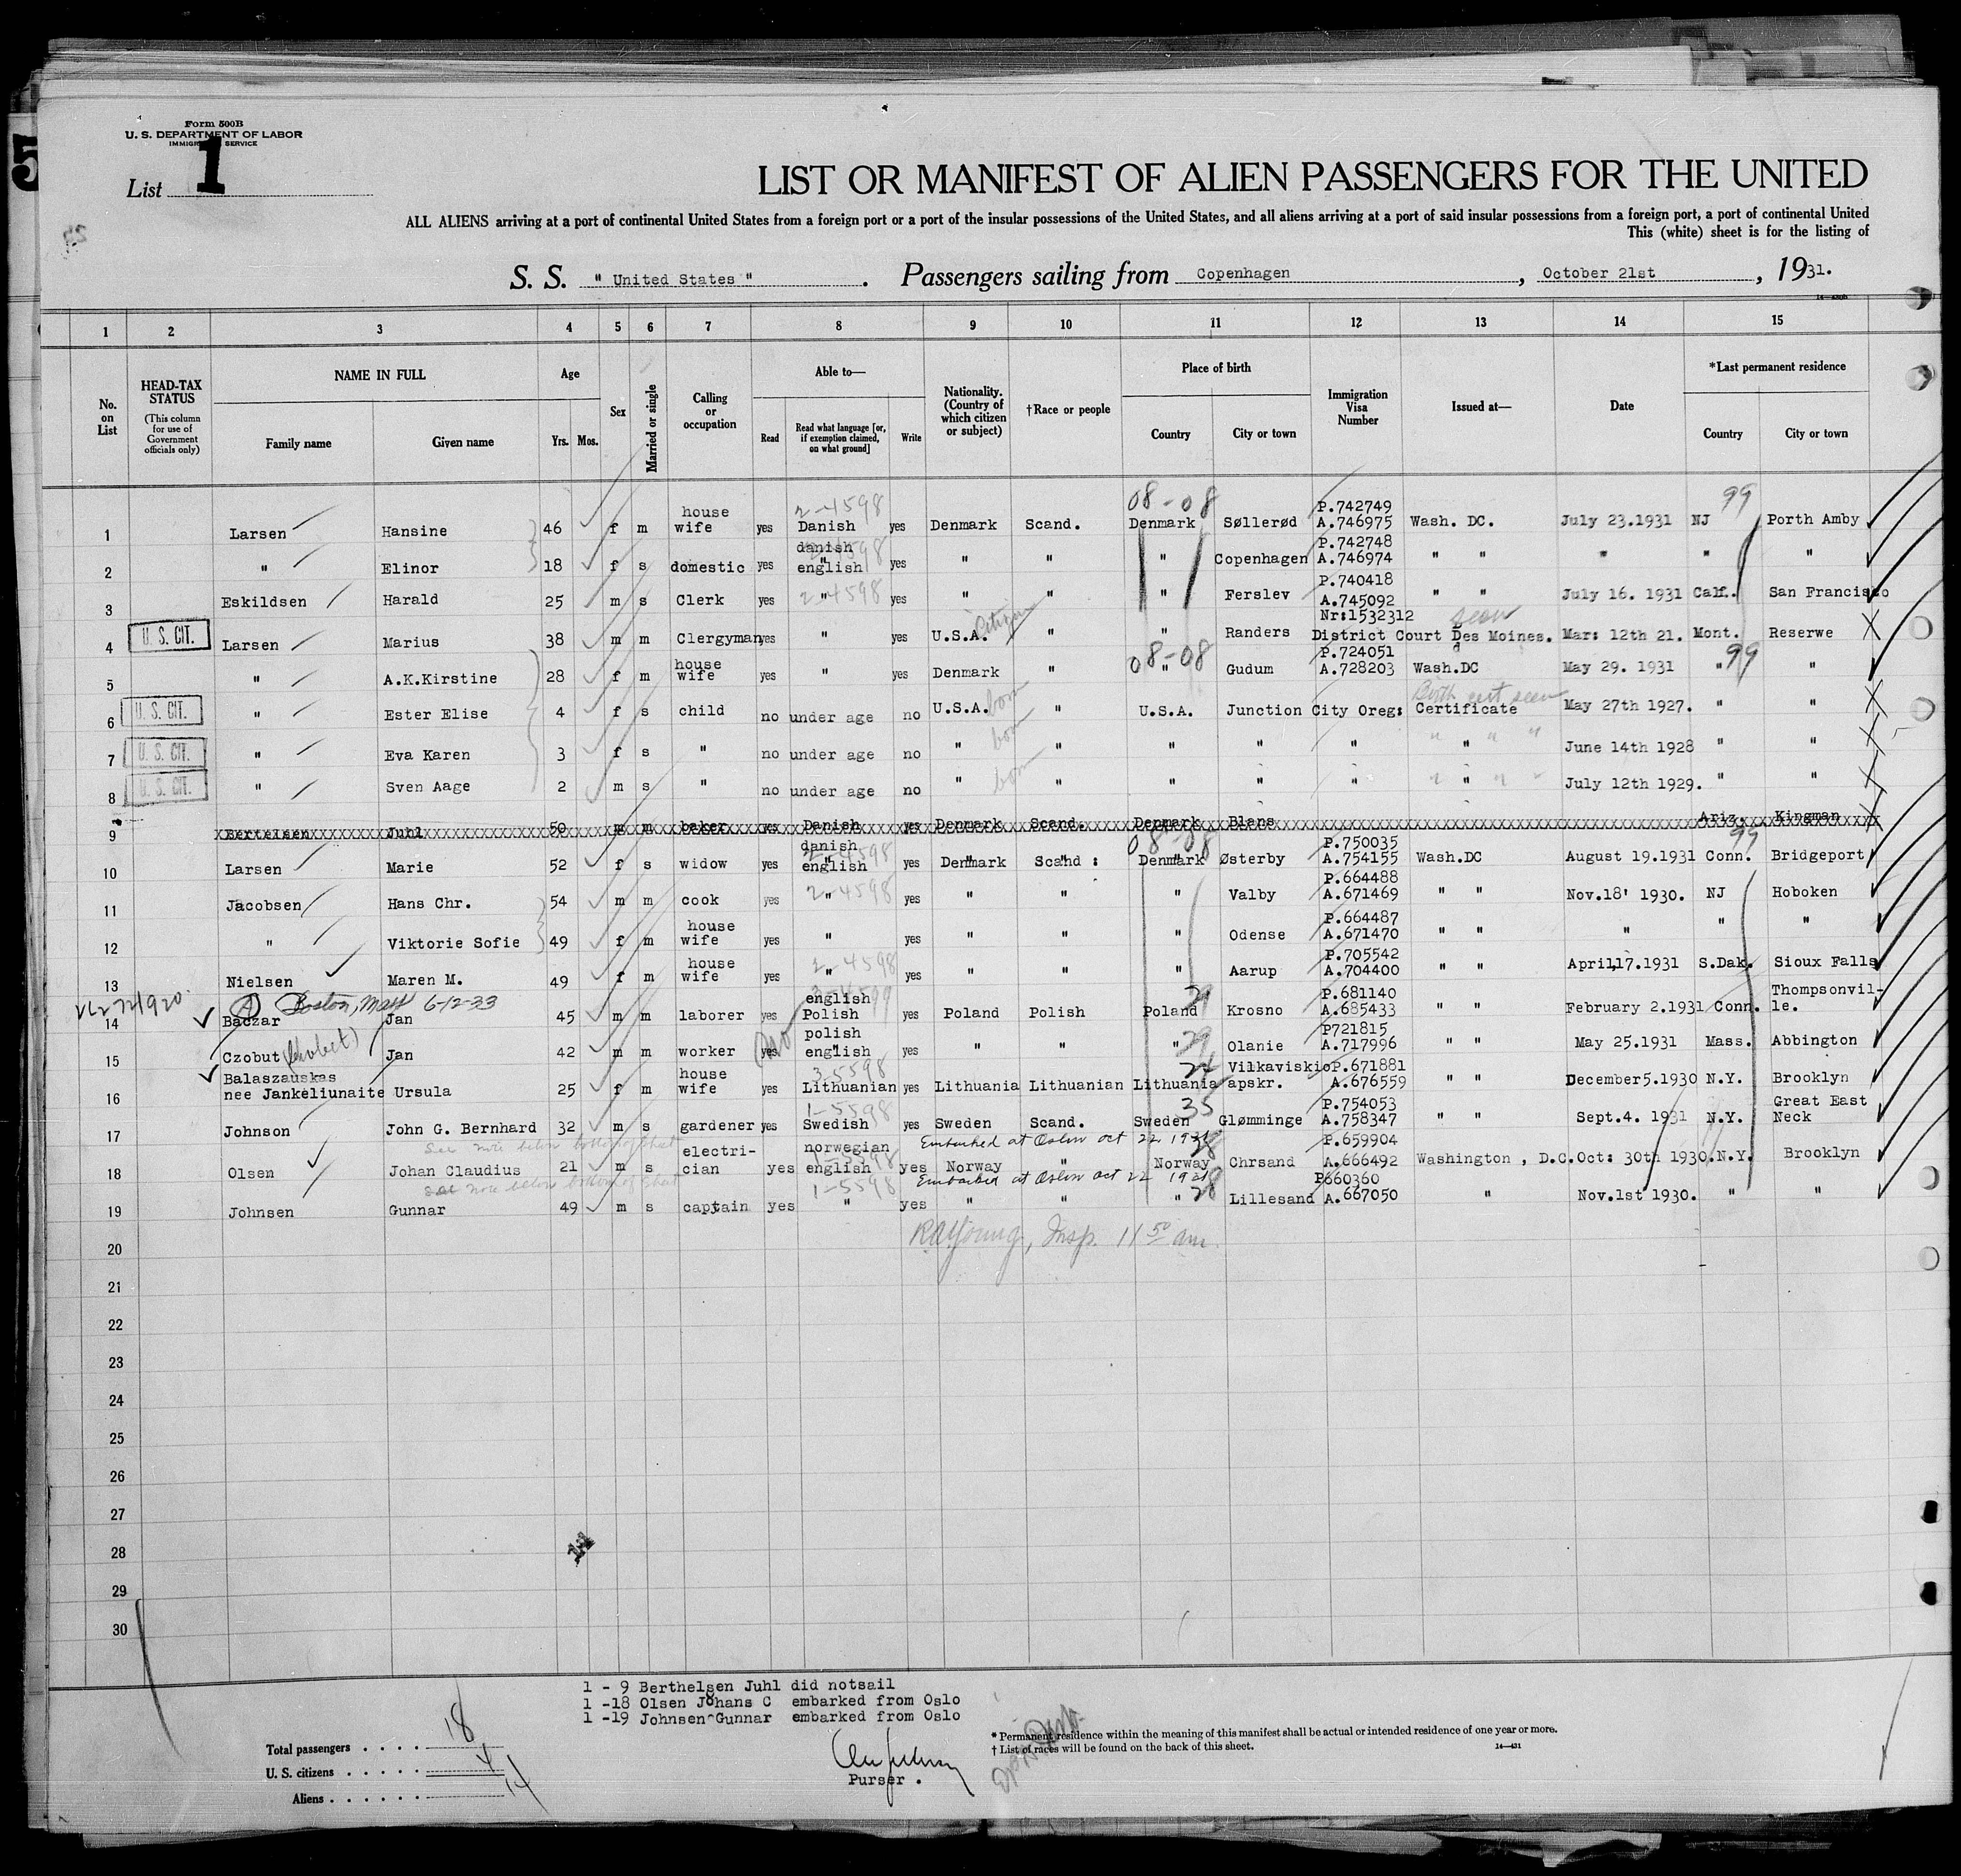 Form 500B
U. S. DEPARTMENT OF LABOR
IMMIGR SERVICE
List 1
LIST OR MANIFEST OF ALIEN PASSENGERS FOR THE UNITED
ALL ALIENS arriving at a port of continental United States from a foreign port or a port of the insular possessions of the United States, and all aliens arriving at a port of said insular possessions from a foreign port, a port of continental United
This (white) sheet is for the listing of
S. S. " United States ". Passengers sailing from Copenhagen, October 21st, 1931.
1 2 3 4 5 6 7 8 9 10 11 12 13 14 15
No. on List
HEAD-TAX STATUS (This column for use of Government officials only)
NAME IN FULL Family name Given name
Age Yrs. Mos.
Sex
Married or single
Calling or occupation
Able to— Read Read what language [or, if exemption claimed, on what ground] Write
Nationality. (Country of which citizen or subject)
†Race or people
Place of birth Country City or town
Immigration Visa Number
Issued at—
Date
*Last permanent residence Country City or town
1 Larsen Hansine 46 f m house wife yes 2-4598 Danish yes Denmark Scand. 08-08 Denmark Søllerød P.742749 A.746975 Wash. DC. July 23.1931 NJ 99 Porth Amby
2 " Elinor 18 f s domestic yes danish " english yes " " " Copenhagen P.742748 A.746974 " " " " "
3 Eskildsen Harald 25 m s Clerk yes 2-4598 " yes " " " Ferslev P.740418 A.745092 " " July 16. 1931 Calf. San Francisco
4 U. S. CIT. Larsen Marius 38 m m Clergyman yes " yes U.S.A. Citizen " " Randers Nr:1532312 District Court Des Moines. seen Mar: 12th 21. Mont. Reserwe
5 " A.K.Kirstine 28 f m house wife yes " yes Denmark " 08-08 " Gudum P.724051 A.728203 Wash.DC May 29. 1931 " 99 "
6 U. S. CIT. " Ester Elise 4 f s child no under age no U.S.A. born " U.S.A. Junction City Oreg: Birth cert seen Certificate May 27th 1927. " "
7 U. S. CIT. " Eva Karen 3 f s " no under age no " born " " " " " June 14th 1928 " "
8 U. S. CIT. " Sven Aage 2 m s " no under age no " born " " " " " July 12th 1929. " "
9 Bertelsen Juhl 50 m m baker yes Danish yes Denmark Scand. Denmark Blans Ariz. Kingman
10 Larsen Marie 52 f s widow yes danish 2-4598 english yes Denmark Scand : 08-08 Denmark Østerby P.750035 A.754155 Wash.DC August 19.1931 Conn. 99 Bridgeport
11 Jacobsen Hans Chr. 54 m m cook yes 2-4598 " yes " " " Valby P.664488 A.671469 " " Nov.18' 1930. NJ Hoboken
12 " Viktorie Sofie 49 f m house wife yes " yes " " " Odense P.664487 A.671470 " " " " "
13 Nielsen Maren M. 49 f m house wife yes 2-4598 " yes " " " Aarup P.705542 A.704400 " " April,17.1931 S.Dak. Sioux Falls
Boston, Mass 6-12-33
14 Baczar Jan 45 m m laborer yes english Polish yes Poland Polish Poland Krosno P.681140 A.685433 " " February 2.1931 Conn. Thompsonvil-le.
15 Czobut Jan 42 m m worker yes polish " english yes " " " Olanie P721815 A.717996 " " May 25.1931 Mass. Abbington
16 Balaszauskas nee Jankeliunaite Ursula 25 f m house wife yes 3-5598 Lithuanian yes Lithuania Lithuanian Lithuania Vilkaviskio apskr. P.671881 A.676559 " " December5.1930 N.Y. Brooklyn
17 Johnson John G. Bernhard 32 m s gardener yes 1-5598 Swedish yes Sweden Scand. 35 Sweden Glømminge P.754053 A.758347 " " Sept.4. 1931 N.Y. Great East Neck
see note below bottom of sheet Embarked at Oslow oct 22 1931
18 Olsen Johan Claudius 21 m s electri-cian yes norwegian 1-5598 english yes Norway " Norway 28 Chrsand P.659904 A.666492 Washington , D.C. Oct: 30th 1930. N.Y. Brooklyn
see note below bottom of sheet Embarked at Oslow oct 22 1931
19 Johnsen Gunnar 49 m s captain yes 1-5598 " yes " " " 28 Lillesand P660360 A.667050 " Nov.1st 1930. " "
20 RAYoung, Insp. 11 50 am.
21
22
23
24
25
26
27
28
29
30
1 - 9 Berthelsen Juhl did notsail
1 -18 Olsen Johans C embarked from Oslo
1 -19 Johnsen Gunnar embarked from Oslo
Total passengers . . . . 18
U. S. citizens . . . . . 4
Aliens . . . . . . 14
Purser .
* Permanent residence within the meaning of this manifest shall be actual or intended residence of one year or more.
† List of races will be found on the back of this sheet.
14—431